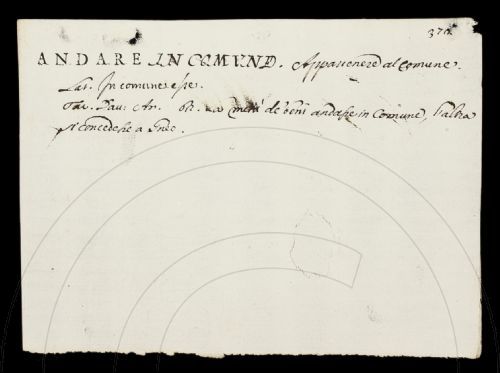 370.
ANDARE IN COMUNO. Appartenere al Comune.
Lat. In comune esse.
Tav. Dav. An. 61. La metà de' beni andasse in Comune, l'altra
si concedesse a